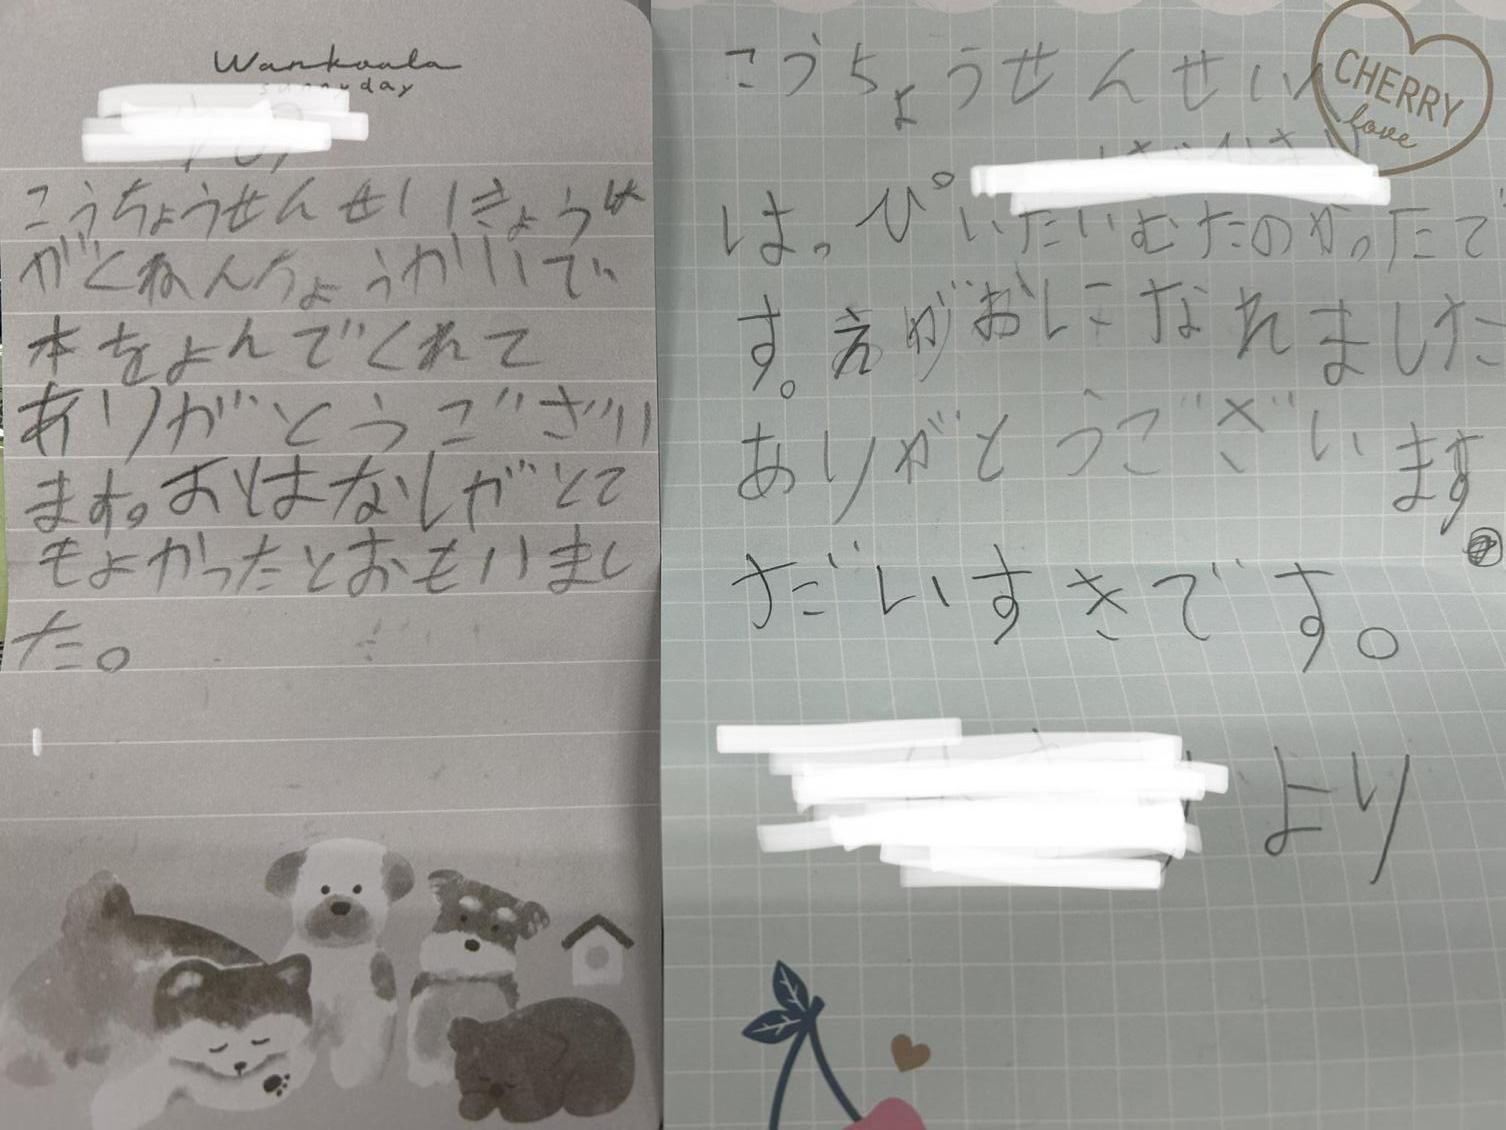 Wankoala
sunnyday
こうちょうせんせいきょうは
がくねんちょうかいで
本をよんでくれて
ありがとうござい
ます。おはなしがとて
もよかったとおもいまし
た。
CHERRY
love
こうちょうせんせい
は。ぴいたいむたのかったで
す。えがおになれました
ありがとうございます
だいすきです。
より